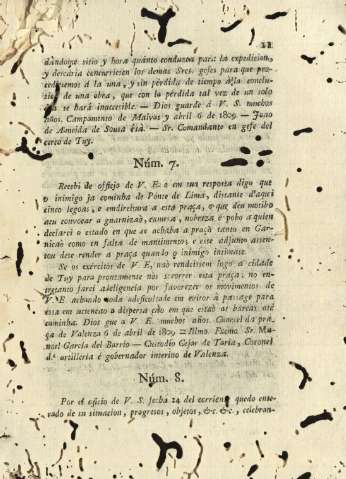 11
dándome sitio y hora quanto conduzca para la expedicion,
y dercaria concurriesen los demas Sres. gefes para que pro-
cediesemos á la una, y sin pérdida de tiempo á la conclu-
de una obra, que con la pérdida tal vez de un solo
se hará inaccesible. — Dios guarde á V. S. muchos
años. Campamento de Malvas y abril 6 de 1809. — Juan
de Almeida de Sousa é Sá. — Sr. Comandante en gefe del
cerco de Tuy.
Núm. 7.
Recebi oficio de V. E. e em sua resposta digu que
o inimigo ja caminha de Ponce de Lima, distante d'aqui
cinco legoas, e endireitura a esta praça, o que deu motivo
a eu convocar a guarnizaō, camera, nobreza e pobo a quien
declarei o estado en que se achaba a praça tanto en Gar-
nicaō como en falta de mantimentos, e este adjunto assen-
tou dese render a praça quando o inimigo intimase.
Se os exércitos de V. E. naō rendeissem logo a cidade
de Tuy para prontamente nos socorrer esta praça; no
farei a deligencia por favorezer os movimentos de
V. E. achando toda a deficultade em evitar á passage para
essa em attencaō a dispersa caō em que estaō as barcas até
caminha. Dios gue a V. E. muchos años. Cuartel da pra-
ça de Valenza 6 de abril de 1809. = Illmo. Excmo. Sr. Ma-
nuel García del Barrio. — Custodio Cesar de Faria, Coronel
d. artilleria é gobernador interino de Valenza.
Núm. 8.
Por el oficio de V. S. fecha 24 del corriente quedo ente-
rado de su situacion, progresos, objetos, &c. &c., celebran-